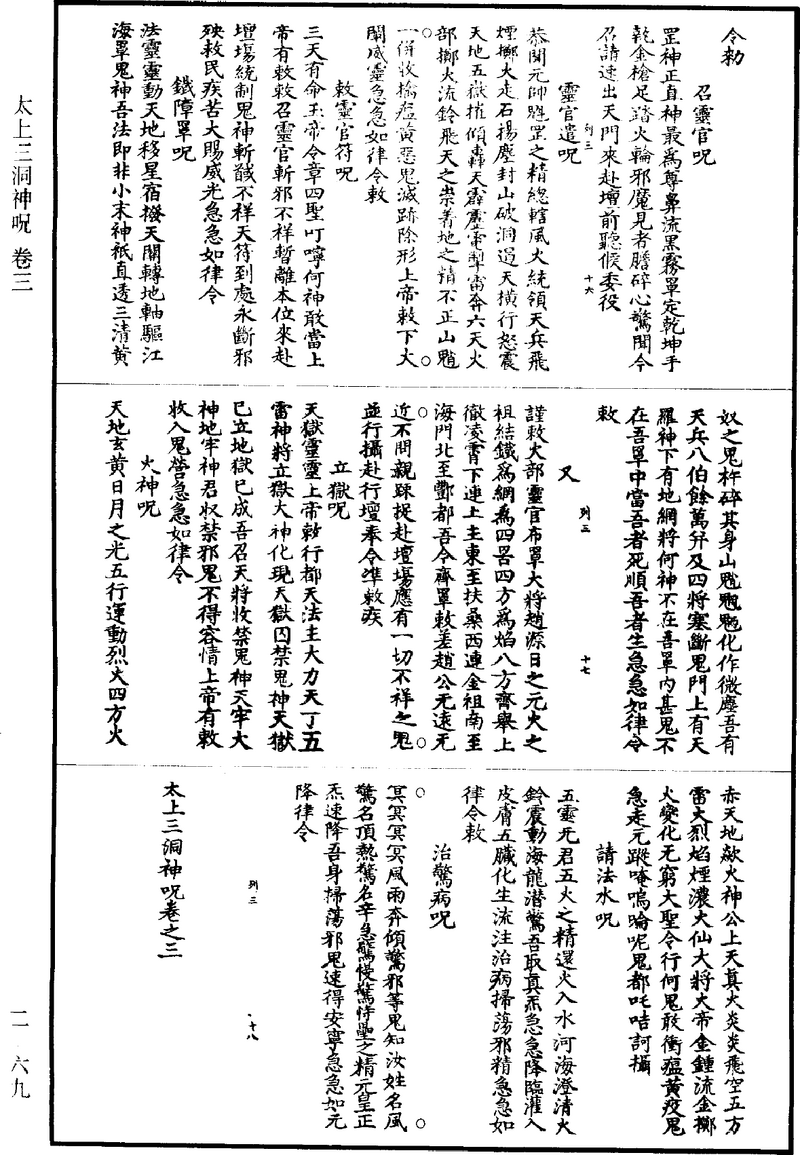 令勑
召靈官呪
罡神正直神最為尊鼻流黑霧罩定乾坤手
執金槍足踏火輪邪魔見者膽碎心驚聞今
召請速出天門來赴壇前聽候委役
靈官遣呪
列三
十六
恭聞元帥魁罡之精總轄風火統領天兵飛
煙擲火走石揚塵封山破洞過天橫行怒震
天地五嶽摧傾轟天霹靂電掣雷奔六天火
部擲火流鈴飛天之祟著地之精不正山魈
一併收擒瘟黃惡鬼滅跡除形上帝敕下火
關威靈急急如律令敕
敕靈官符呪
三天有命玉帝令章四聖叮嚀何神敢當上
帝有敕敕召靈官斬邪不祥暫離本位來赴
壇場統制鬼神斬馘不祥天符到處永斷邪
殃救民疾苦大賜威光急急如律令
鐵障罩呪
法靈靈動天地移星宿撥天關轉地軸驅江
海罩鬼神吾法即非小末神祇直透三清黃
奴之鬼杵碎其身山魈魍魎化作微塵吾有
天兵八伯餘萬并及四將塞斷鬼門上有天
羅神下有地網將何神不在吾罩內甚鬼不
在吾罩中當吾者死順吾者生急急如律令
敕
又
列三
十七
謹敕火部靈官布罩大將趙源日之元火之
祖結鐵為網為四罟四方為焰八方齊舉上
徹凌霄下連上主東至扶桑西連金祖南至
海門北至酆都吾令齊罩敕差趙公无遠无
近不問親踈捉赴壇場應有一切不祥之鬼
並行攝赴行壇奉令準敕疾
立獄呪
天獄靈靈上帝敕行都天法主大力天丁五
雷神將立獄大神化現天獄囚禁鬼神天獄
已立地獄已成吾召天將收禁鬼神天牢大
神地牢神君収禁邪鬼不得容情上帝有敕
收入鬼營急急如律令
火神呪
天地玄黃日月之光五行運動烈火四方火
赤天地歘火神公上天真火炎炎飛空五方
雷火烈焰煙濃火仙大將火帝金鍾流金擲
火變化无窮大聖令行何鬼敢衝瘟黃疫鬼
急走元蹤唵嗚㗮呢鬼都吒咭訶攝
請法水呪
五靈元君五火之精還火入水河海澄清火
鈴震動海龍潜驚吾取真炁急急降臨灌入
皮膚五臟化生流注治病掃蕩邪精急急如
律令敕
治驚病呪
冥冥冥冥風雨奔傾驚邪等鬼知汝姓名風
驚名頂熱驚名辛急驚慢驚恃聖之精元皇正
炁速降吾身掃蕩邪鬼速得安寧急急如元
降律令
列三
十八
太上三洞神呪卷之三
太上三洞神呪 卷三
二-六九